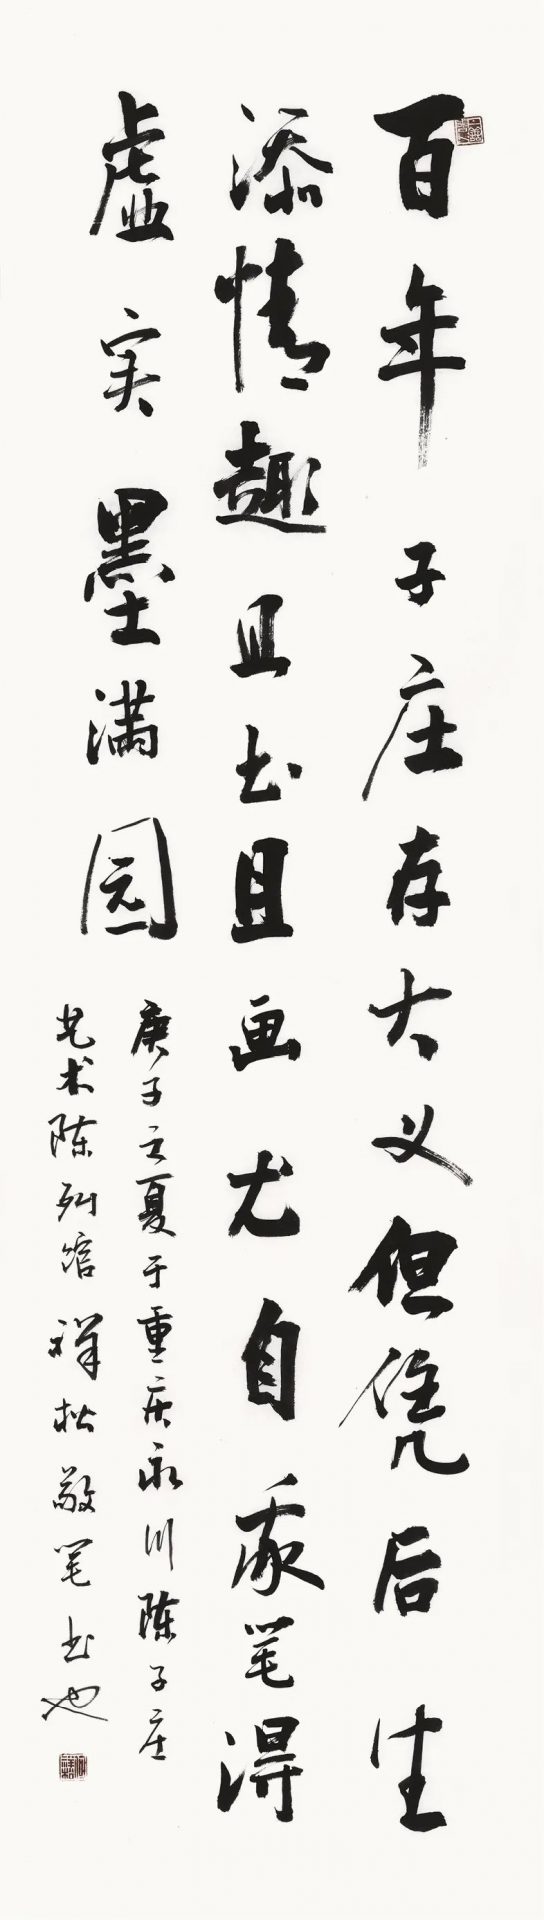 百年子庄存大义但凭后生
添情趣且书且画尤自承笔得
虚实墨满园
庚子立夏于重庆永川陈子庄
艺术陈列馆祥松敬笔书也